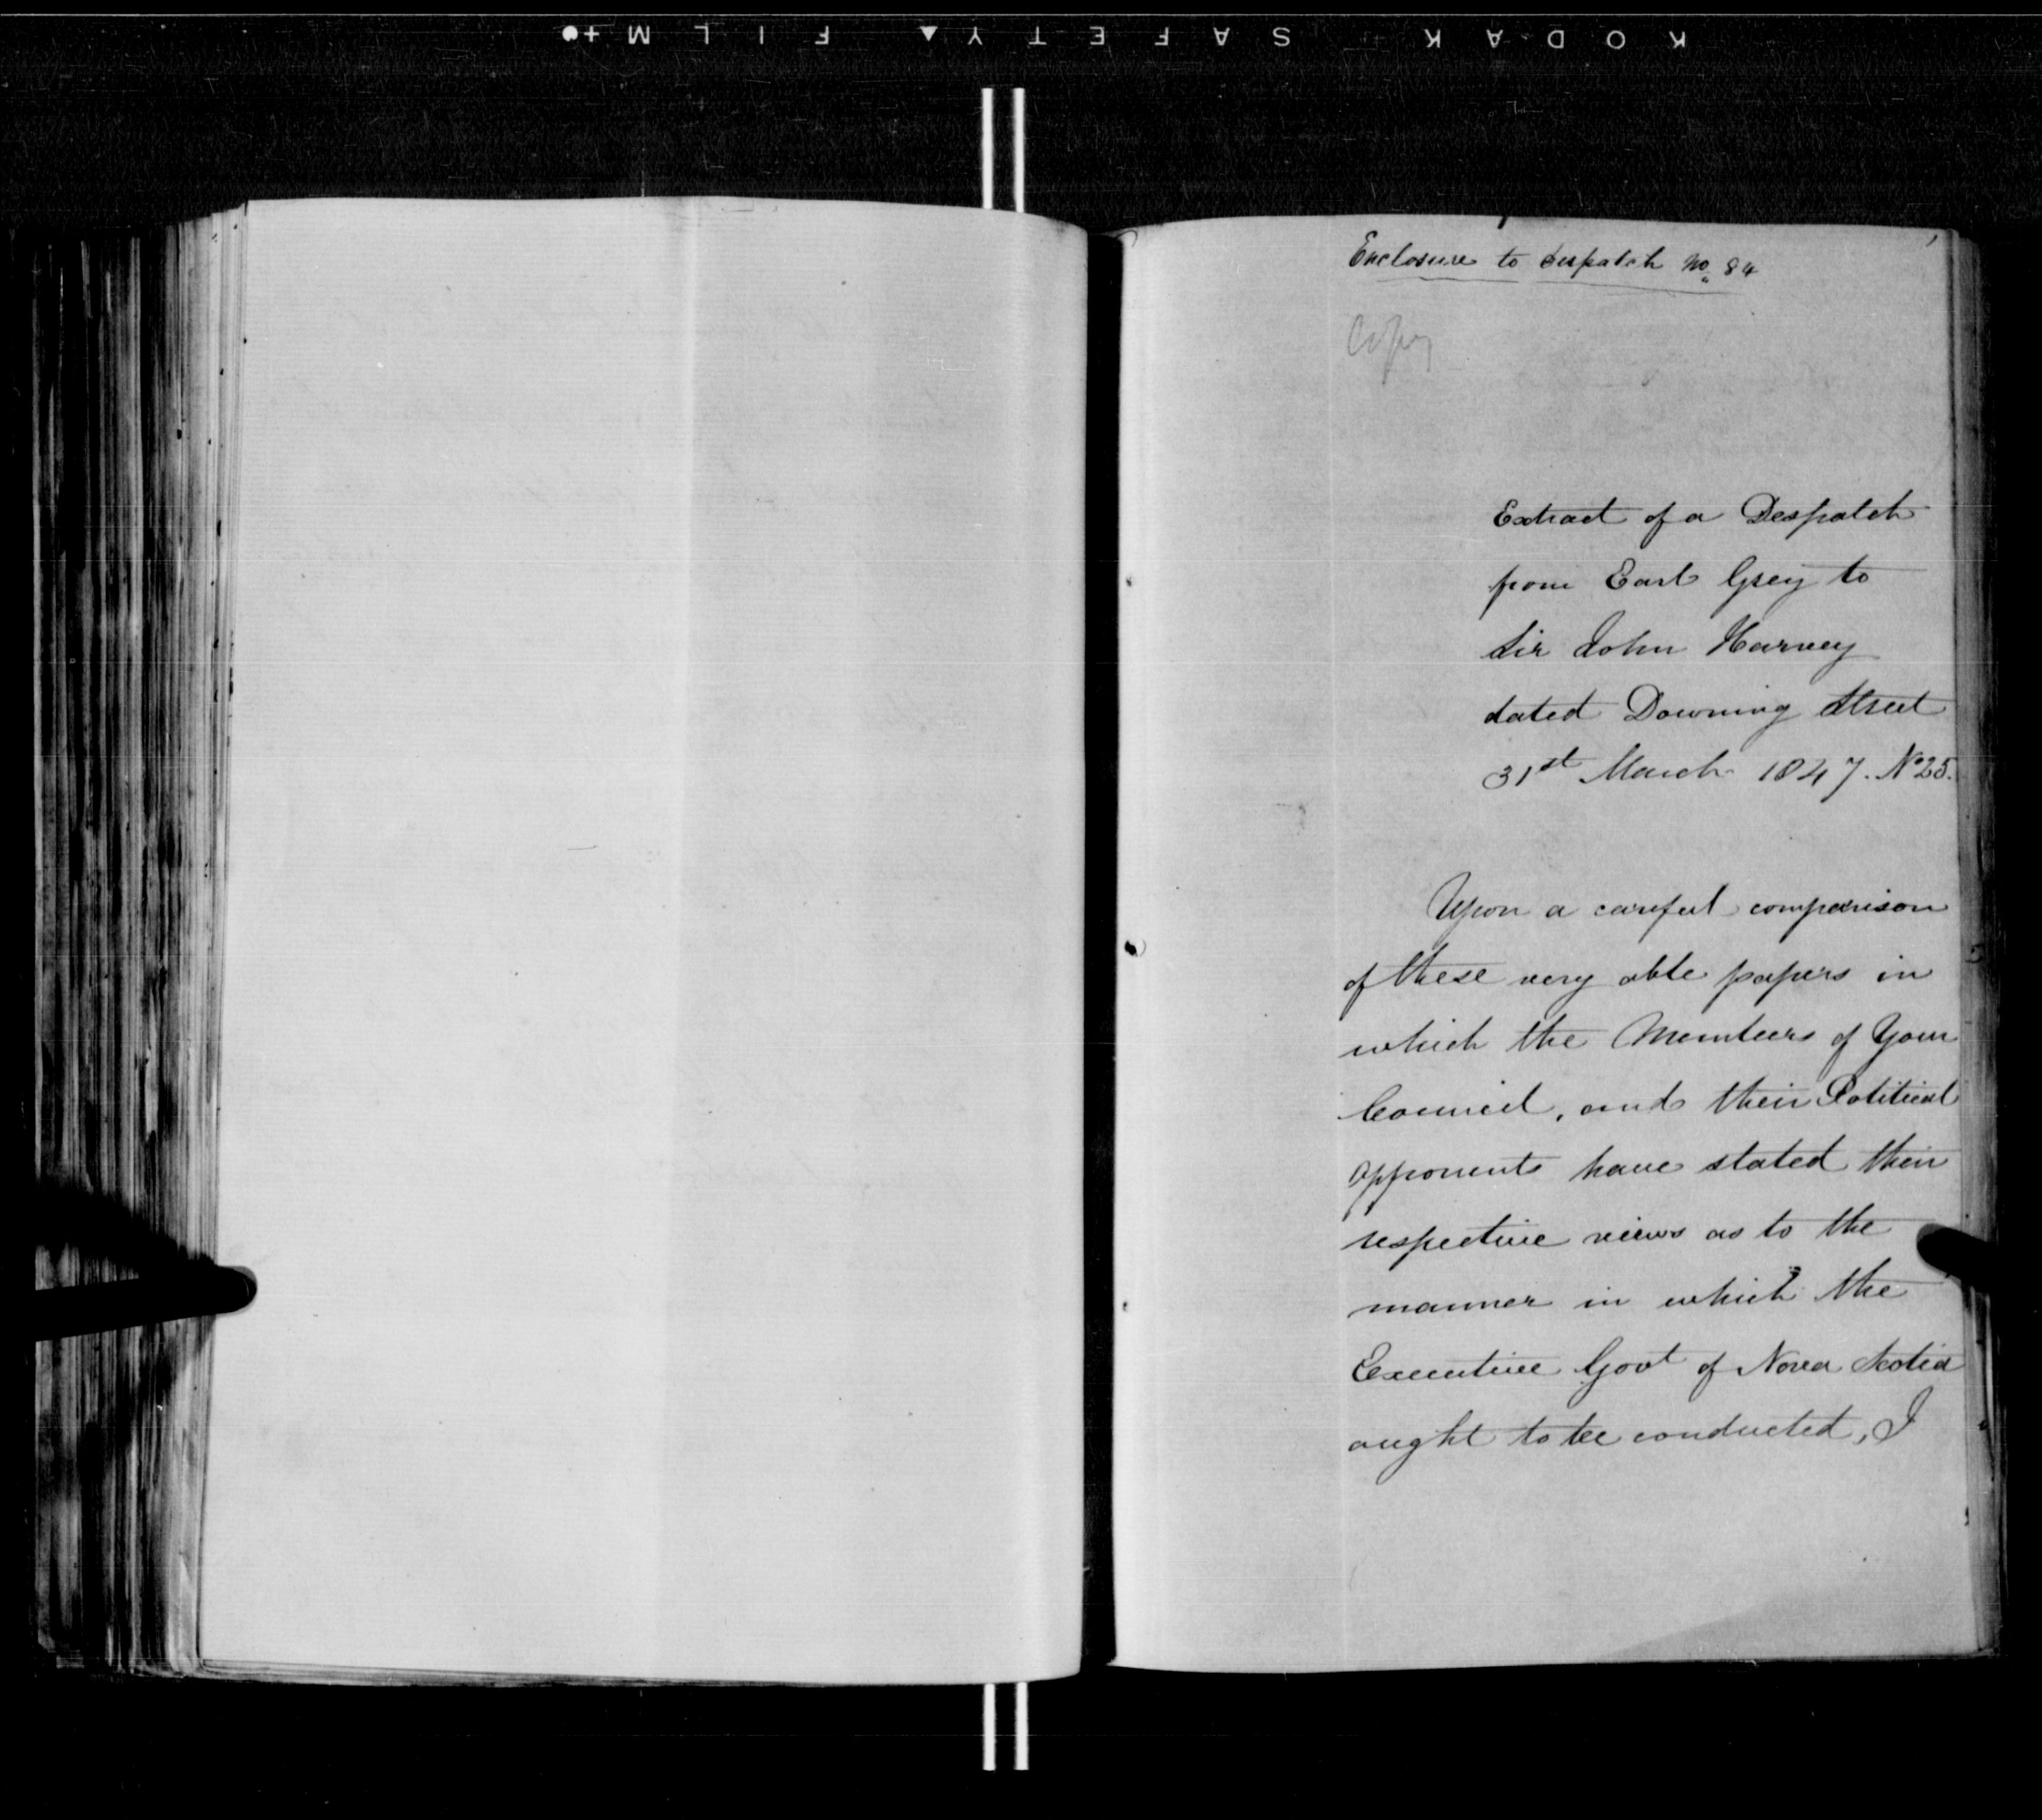 KODAK SAFETY FILM
Enclosure to Despatch No. 84
Copy
Extract of a Despatch
from Earl Grey to
Sir John Harvey
dated Downing Street
31st March 1847. No 25.
Upon a careful comparison
of these very able papers in
which the Members of Your
Council, and their Political
opponents have stated their
respective views as to the
manner in which the
Executive Govt of Nova Scotia
ought to be conducted, I